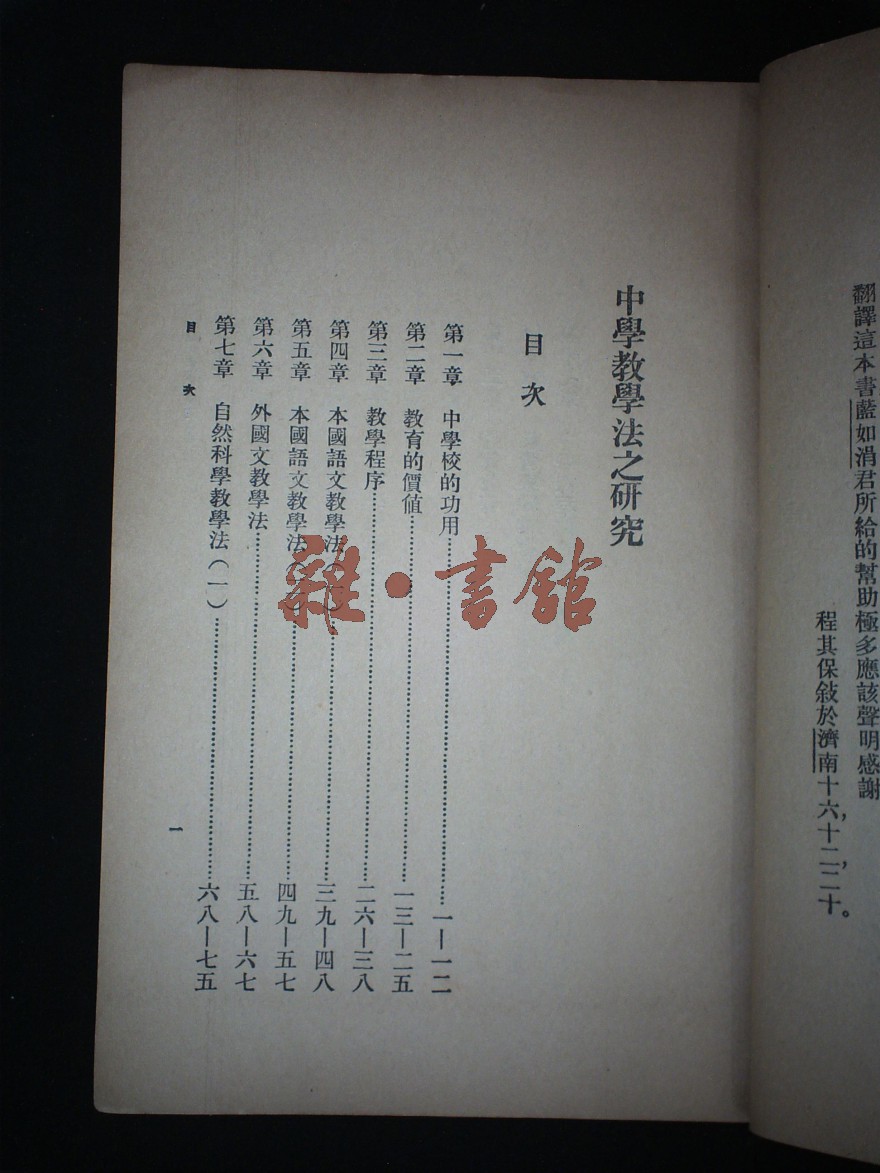 翻譯這本書藍如涓君所給的幫助極多應該聲明感謝
程其保敍於濟南十六，十二，二十。
中學教學法之研究
目次
第一章 中學校的功用……一—一二
第二章 教育的價値……一三—二五
第三章 教學程序……二六—三八
第四章 本國語文教學法(一)……三九—四八
第五章 本國語文教學法(二)……四九—五七
第六章 外國文教學法……五八—六七
第七章 自然科學教學法(一)……六八—七五
目次
一
雜·書館